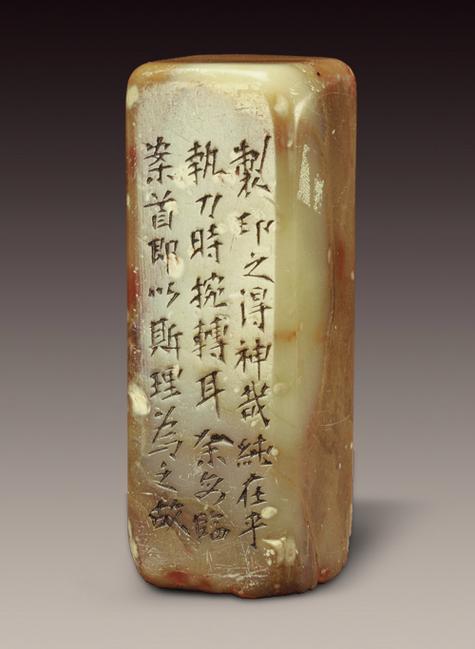 製印之得神哉純在乎
執刀時捥轉耳余臨
案首即以斯理為之故